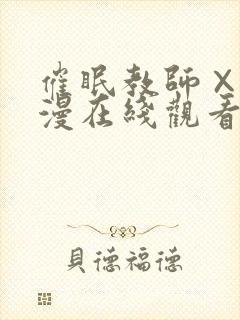 催眠教師X
漫在綫觀看
貝德福德